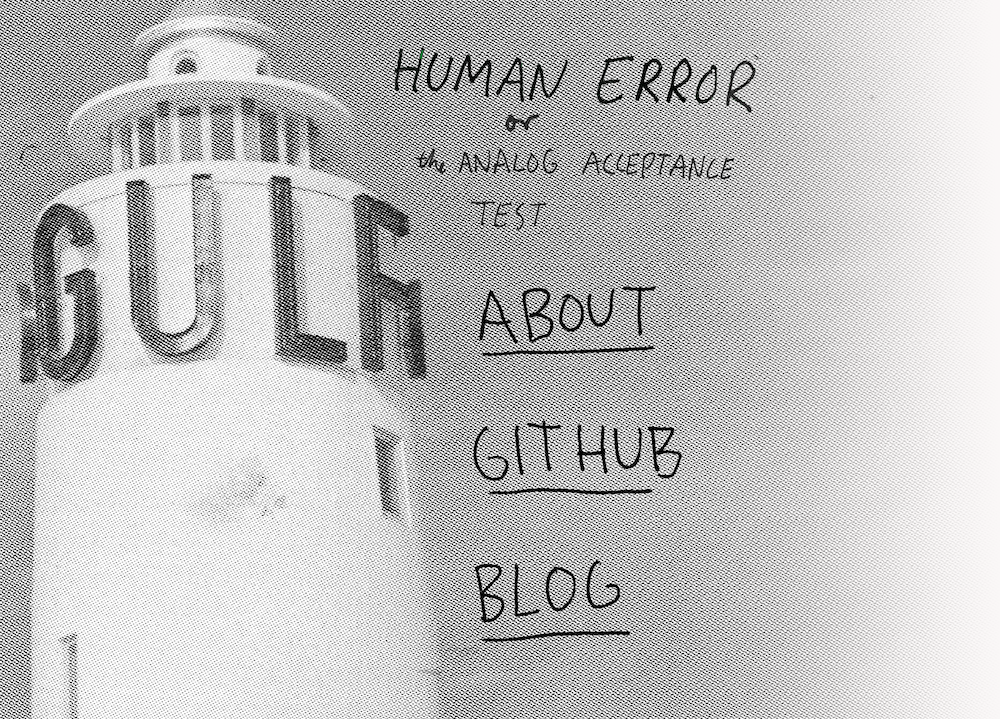 HUMAN ERROR
or
the ANALOG ACCEPTANCE
TEST
GULF
ABOUT
GITHUB
BLOG